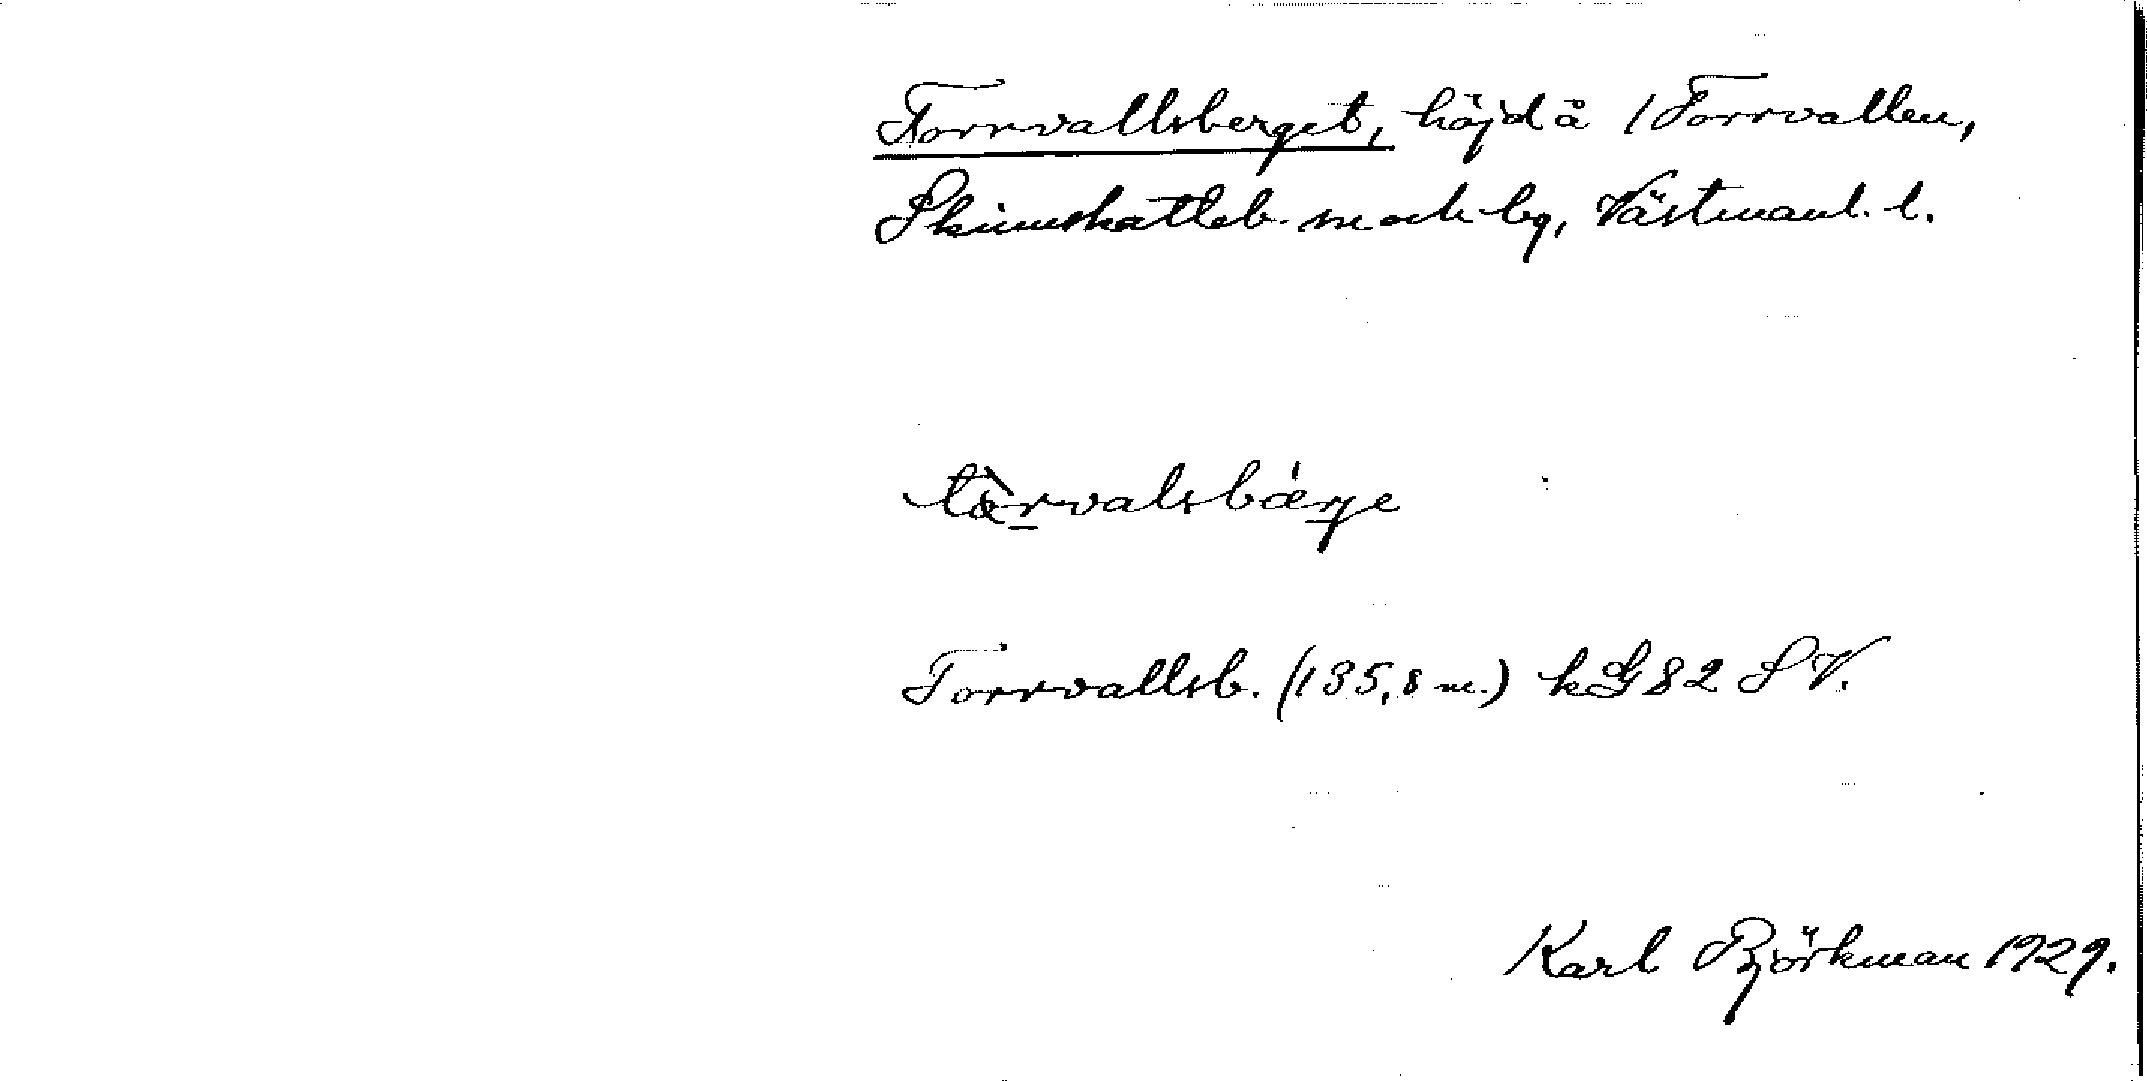 Torrvallsberget, höjd å /Torrvallen,
Skinnskatteb. sn och bg, Västmanl. l.
tòrvalsbærje
Torrvallsb. (135,8 m.) kG 82 SV.
Karl Björkman 1929.